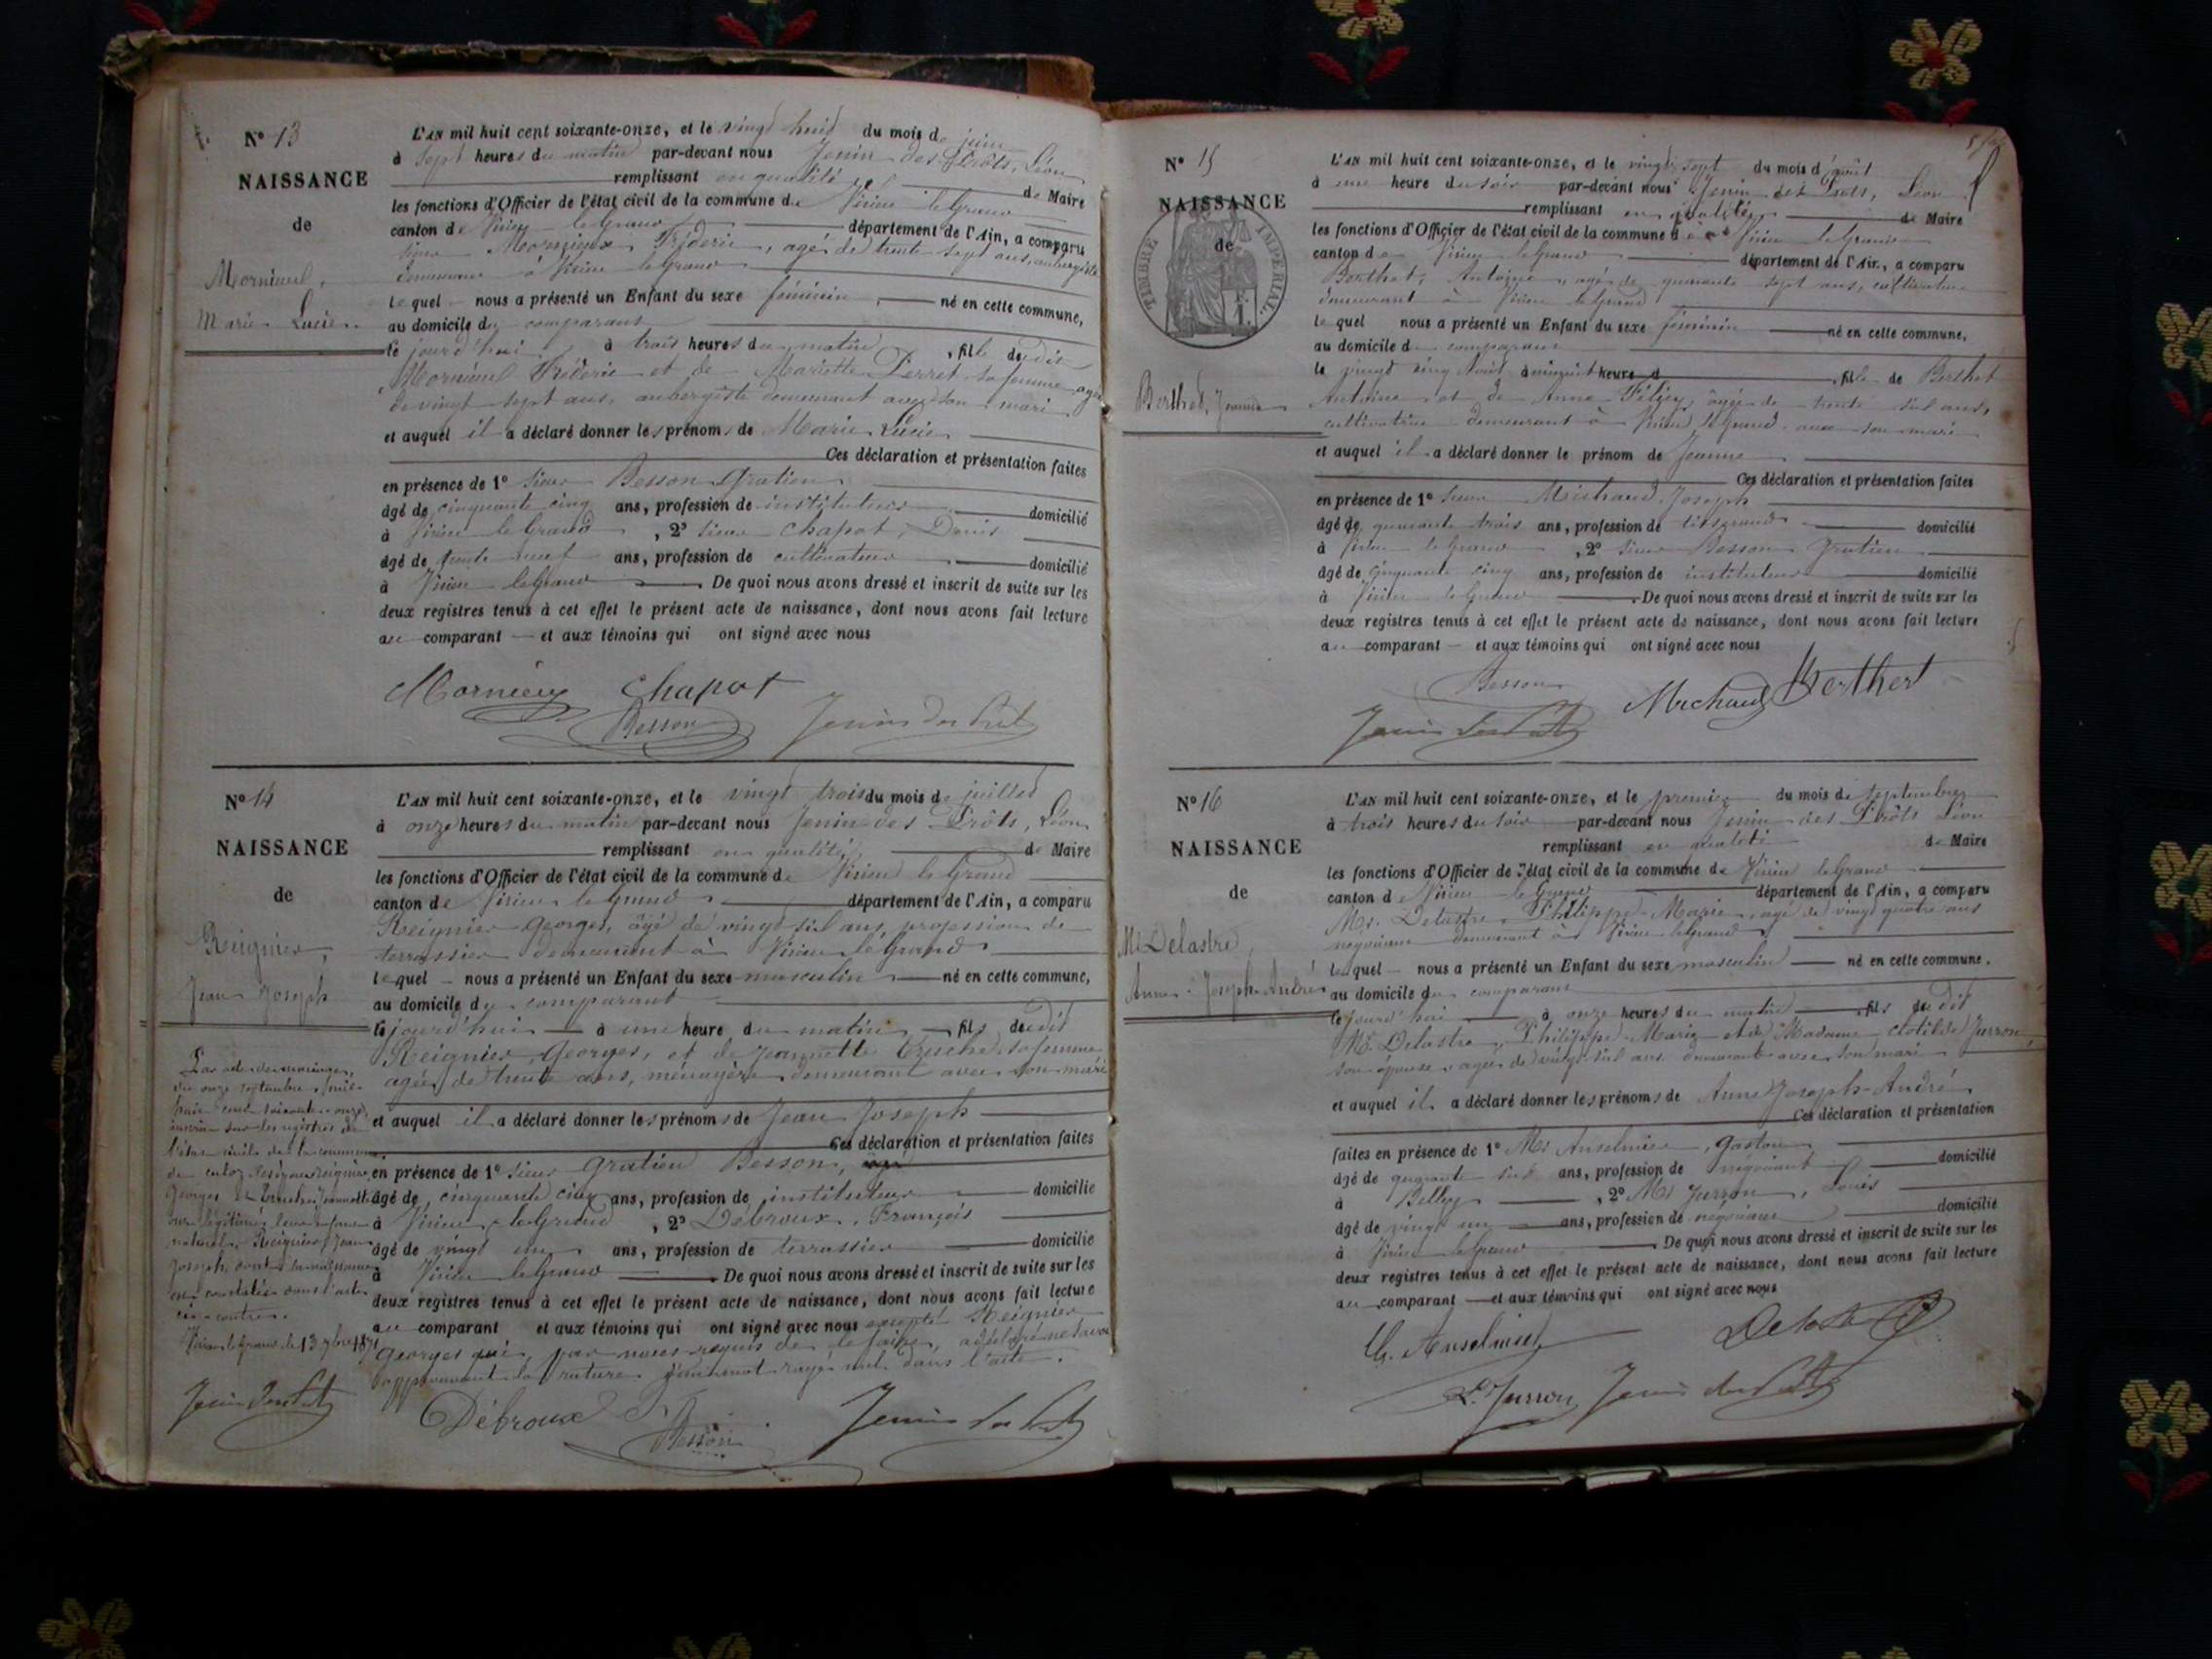 N° 13
NAISSANCE
de
Mornieux,
Marie Lucie
L'AN mil huit cent soixante-onze, et le vingt huit du mois de juin
à sept heures du matin par-devant nous Jenin des Prôts, Léon
remplissant en qualité de Maire
les fonctions d'Officier de l'état civil de la commune de Virieu le Grand
canton de Virieu le Grand département de l'Ain, a comparu
sieur Mornieux Fréderic, agé de trente sept ans, aubergiste
demeurant à Virieu le Grand
lequel nous a présenté un Enfant du sexe féminin né en cette commune,
au domicile du comparant
le jourd'hui à trois heures du matin, fille dudit
Mornieux Fréderic et de Mariette Perret sa femme agée
de vingt sept ans, aubergiste demeurant avec son mari
et auquel il a déclaré donner les prénoms de Marie Lucie
Ces déclaration et présentation faites
en présence de 1° sieur Besson Gratien
âgé de cinquante cinq ans, profession de instituteur domicilié
à Virieu le Grand, 2° sieur Chapot, Denis
âgé de trente neuf ans, profession de cultivateur domicilié
à Virieu le Grand. De quoi nous avons dressé et inscrit de suite sur les
deux registres tenus à cet effet le présent acte de naissance, dont nous avons fait lecture
au comparant et aux témoins qui ont signé avec nous
Mornieux Chapot
Besson Jenin des Prôts
N° 14
NAISSANCE
de
Reignier,
Jean Joseph
L'AN mil huit cent soixante-onze, et le vingt trois du mois de juillet
à onze heures du matin par-devant nous Jenin des Prôts, Léon
remplissant en qualité de Maire
les fonctions d'Officier de l'état civil de la commune de Virieu le Grand
canton de Virieu le Grand département de l'Ain, a comparu
Reignier Georges, âgé de vingt six ans, profession de
terrassier demeurant à Virieu le Grand
lequel nous a présenté un Enfant du sexe masculin né en cette commune,
au domicile du comparant
le jourd'hui à une heure du matin, fils dudit
Reignier, Georges, et de Jeannette sa femme
agée de trente ans, ménagère demeurant avec son mari
et auquel il a déclaré donner les prénoms de Jean Joseph
Ces déclaration et présentation faites
en présence de 1° sieur Gratien Besson,
âgé de cinquante cinq ans, profession de instituteur domicilié
à Virieu le Grand, 2° Débroux, François
âgé de vingt un ans, profession de terrassier domicilié
à Virieu le Grand. De quoi nous avons dressé et inscrit de suite sur les
deux registres tenus à cet effet le présent acte de naissance, dont nous avons fait lecture
au comparant et aux témoins qui ont signé avec nous excepté Reignier
Georges qui, par nous requis de le faire, a déclaré ne savoir
approuvant la rature d'un mot rayé nul dans l'acte.
Par acte de mariage,
du onze septembre mil
huit cent soixante-onze,
inscrit sur les registres de
l'état civil de la commune
de Culoz, Reignier
Georges et Jeannette
ont légitimé leur enfant
naturel, Reignier Jean
Joseph, dont la naissance
est constatée dans l'acte
ci-contre.
Virieu le Grand le 13 7bre 1871
Jenin des Prôts
Débroux F. Besson Jenin des Prôts
N° 15
NAISSANCE
de
TIMBRE IMPERIAL
Berthet, Jeanne
L'AN mil huit cent soixante-onze, et le vingt sept du mois d'août
à une heure du soir par-devant nous Jenin des Prôts, Léon
remplissant en qualité de Maire
les fonctions d'Officier de l'état civil de la commune de Virieu le Grand
canton de Virieu le Grand département de l'Ain, a comparu
Berthet, Antoine, agé de quarante sept ans, cultivateur
demeurant à Virieu le Grand
lequel nous a présenté un Enfant du sexe féminin né en cette commune,
au domicile du comparant
le vingt cinq août à minuit heure d, fille de Berthet
Antoine et de Anne, âgée de trente six ans,
cultivatrice demeurant à Virieu le Grand avec son mari
et auquel il a déclaré donner le prénom de Jeanne
Ces déclaration et présentation faites
en présence de 1° sieur Michaud Joseph
âgé de quarante trois ans, profession de tisserand domicilié
à Virieu le Grand, 2° sieur Besson Gratien
âgé de cinquante cinq ans, profession de instituteur domicilié
à Virieu le Grand. De quoi nous avons dressé et inscrit de suite sur les
deux registres tenus à cet effet le présent acte de naissance, dont nous avons fait lecture
au comparant et aux témoins qui ont signé avec nous
Besson Michaud Berthet
Jenin des Prôts
N° 16
NAISSANCE
de
Mr Delastre,
Anne-Joseph-André
L'AN mil huit cent soixante-onze, et le premier du mois de septembre
à trois heures du soir par-devant nous Jenin des Prôts Léon
remplissant en qualité de Maire
les fonctions d'Officier de l'état civil de la commune de Virieu le Grand
canton de Virieu le Grand département de l'Ain, a comparu
Mr. Delastre, Philippe-Marie, agé de vingt quatre ans
négociant demeurant à Virieu le Grand
lequel nous a présenté un Enfant du sexe masculin né en cette commune.
au domicile du comparant
le jourd'hui à onze heures du matin, fils dudit
Mr. Delastre, Philippe-Marie et de Madame Clotilde Jurron
son épouse, agée de vingt six ans demeurant avec son mari
et auquel il a déclaré donner les prénoms de Anne-Joseph-André
Ces déclaration et présentation
faites en présence de 1° Mr Anselmier, Gaston
âgé de quarante six ans, profession de négociant domicilié
à Belley, 2° Mr Jurron, Louis
âgé de vingt un ans, profession de négociant domicilié
à Virieu le Grand. De quoi nous avons dressé et inscrit de suite sur les
deux registres tenus à cet effet le présent acte de naissance, dont nous avons fait lecture
au comparant et aux témoins qui ont signé avec nous
G. Anselmier Delastre
L. Jurron Jenin des Prôts